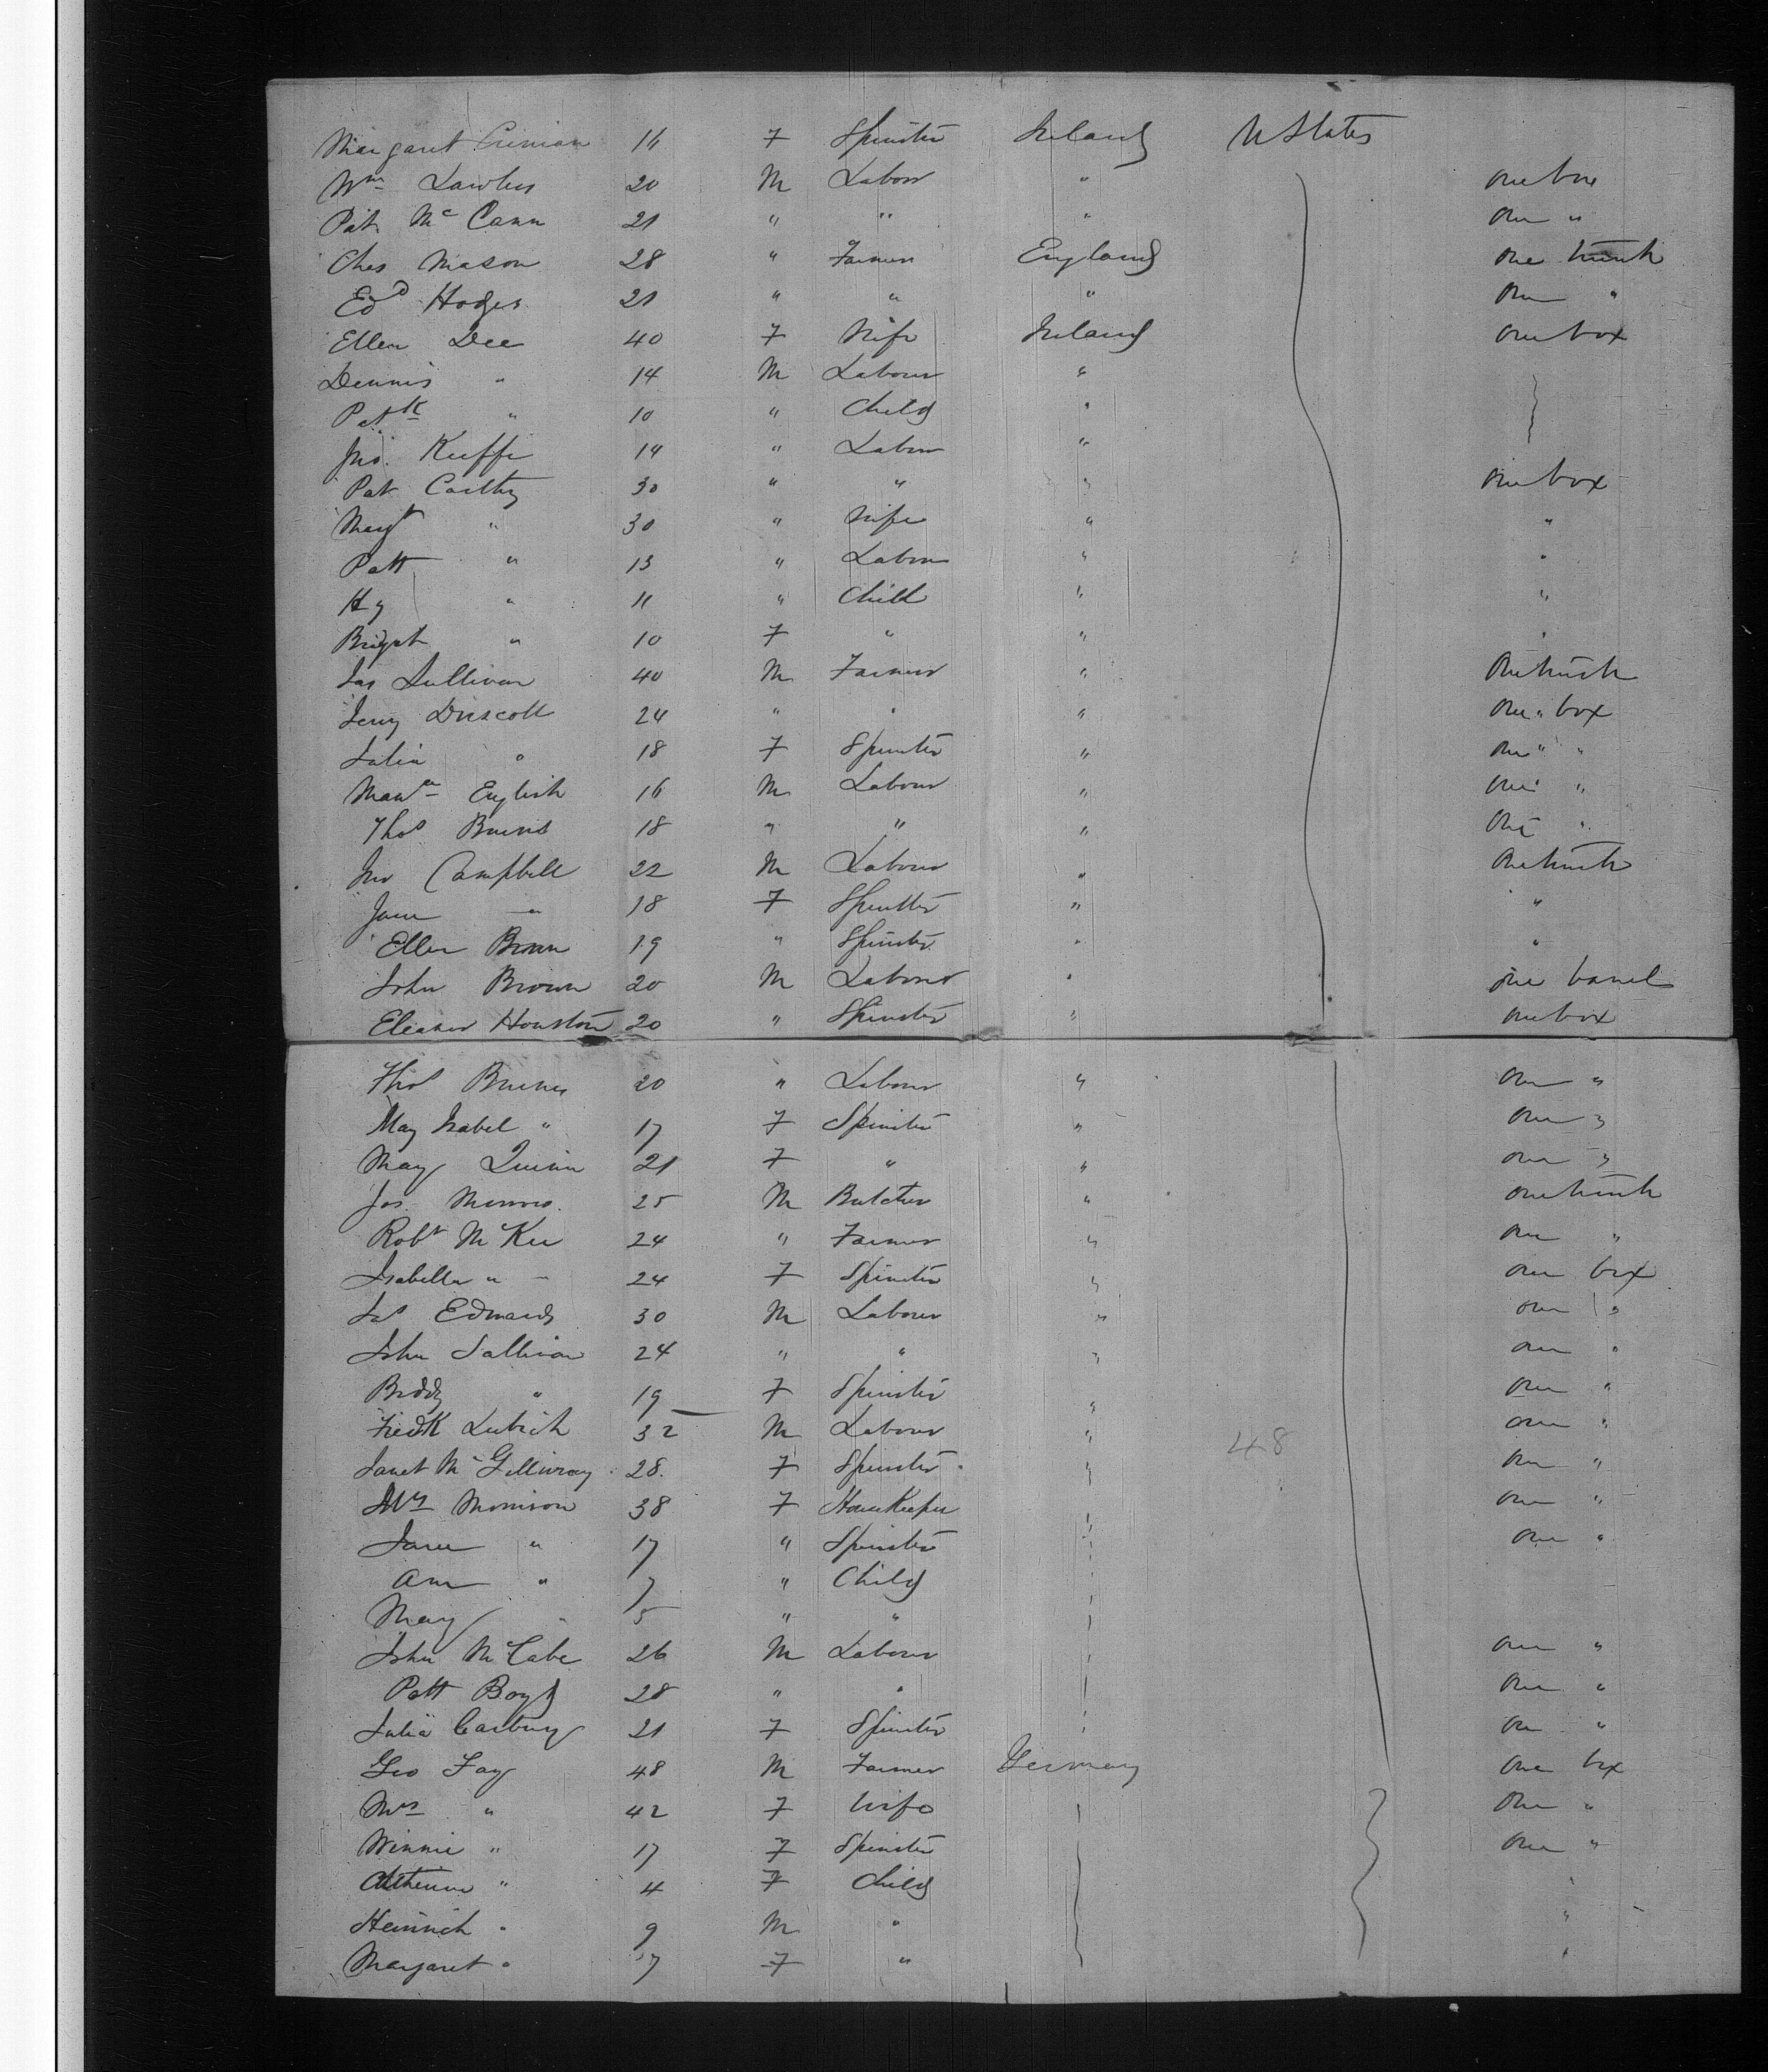 Margaret 16 F Spinster Ireland U States
Wm Lawless 20 M Labour " one box
Pat Mc Cann 21 " " " one "
Chas Mason 28 " Farmer England one trunk
Ed Hodges 21 " " " one "
Ellen Dee 40 F Wife Ireland one box
Dennis " 14 M Labour "
Patk " 10 " Child "
Jno. Keeffe 14 " Labour "
Pat Carthy 30 " " " one box
Margt " 30 " Wife " "
Patt " 13 " Labour " "
Hy " 11 " Child " "
Bridget " 10 F " " "
Jas Sullivan 40 M Farmer " One trunk
Jerry Driscoll 24 " " " one " box
Julia " 18 F Spinster " one " "
English 16 M Labour " one "
Thos Burns 18 " " " one "
Jno Campbell 22 M Labour " One trunk
Jane " 18 F Spinster " "
Ellen Brown 19 " Spinster " "
John Brown 20 M Labour " one barrel
Eleanor Houston 20 " Spinster " one box
Thos 20 " Labour " one "
May Isabel " 17 F Spinster " one "
Mary Quinn 21 F " " one "
Jos. 25 M Butcher " one trunk
Robt McKee 24 " Farmer " one "
Isabella " 24 F Spinster " one box
Js Edwards 30 M Labour " one "
John Sullivan 24 " " " one "
Biddy " 19 F Spinster " one "
Fredk 32 M Labour " one "
Janet McGillivray 28. F Spinster " 48 one "
Mrs Morrison 38 F HouseKeeper " one "
Jane " 17 " Spinster " one "
Ann " 7 " Child "
Mary " 5 " " "
John McCabe 26 M Labour " one "
Patt Boyd 28 " " " one "
Julia Carbury 21 F Spinster " one "
Geo Fay 48 M Farmer Germany one box
Mrs " 42 F Wife one "
Winnie " 17 F Spinster one "
Catherine " 4 F Child "
Heinrich " 9 M " "
Margaret " 17 F " "